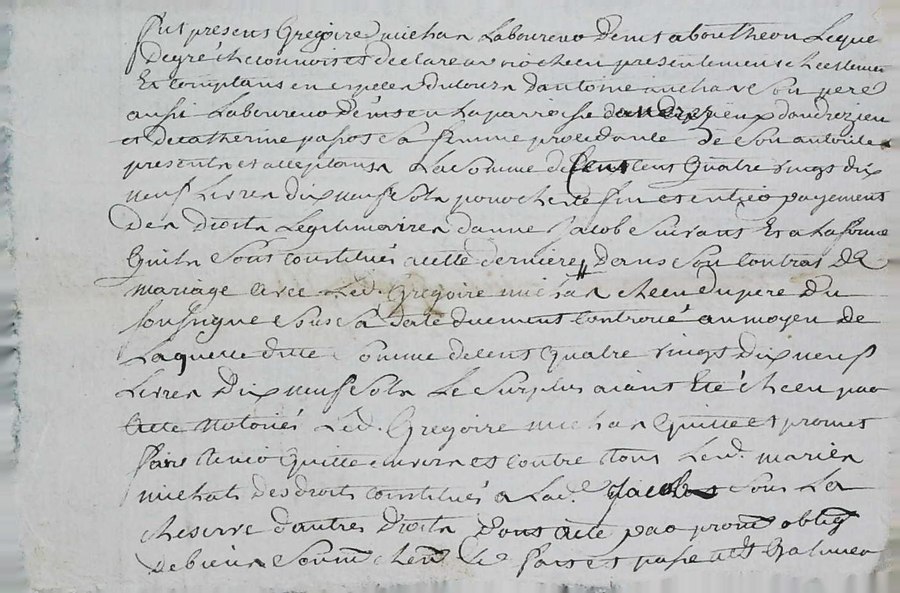 fut present Gregoire michat Laboureur Demt a boutheon Lequel
De gré a Reconnu et declare avoir Receu presentement Reellement
Et Comptant en espece du cours d'antoine michat Son pere
aussi Laboureur Demt en La parroisse d'andrezieux d'andrezieu
et de catherine passot Sa femme procedante De Son autorité
presente et acceptante La Somme de Cent Quatre vingt dix
neuf Livres dix neuf Sols pour Reste fin et entier payement
Des Droits Legitimaires d'anne Jacob Suivant Et a La forme
Quils Sont constitués a cette derniere dans Son Contrat De
mariage avec Led. Gregoire michat Receu du pere du
Soussigné Sous Sa date duement Controllé au moyen de
Laquelle ditte Somme de cent Quatre vingt Dix neuf
Livres Dix neuf Sols Le Surplus aiant Eté Receu par
acte Notarié Led. Gregoire michat Quitte et promet
faire tenir Quitte envers et contre tous Lesd. mariés
michat des droits constitués a Lad. Jacob Sous La
Reserve d'autres Droits Dont acte par prom oblig
De biens Soum Ren Cl fait et passé a St Galmier